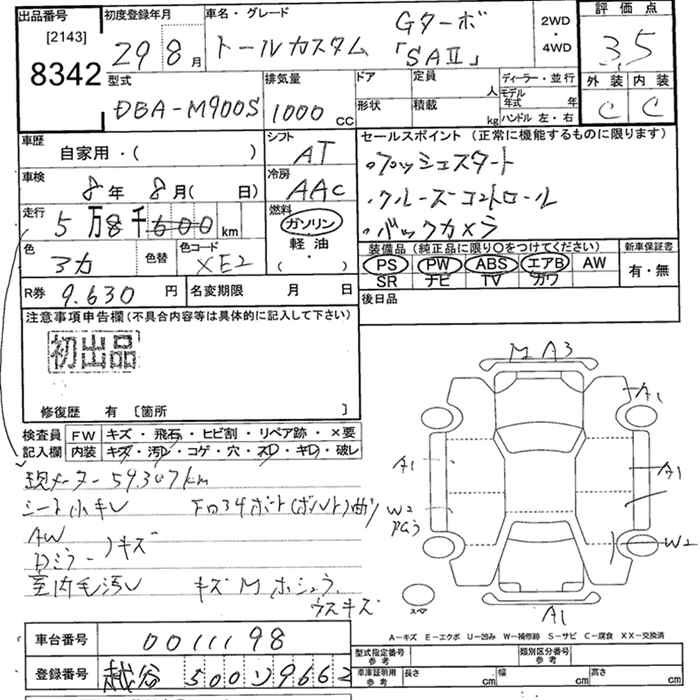 出品番号
[2143]
8342
初度登録年月
29 8月
車名・グレード
Gターボ
トールカスタム 「SAⅡ」
2WD
・
4WD
評価点
3.5
外装 内装
C C
型式
DBA-M900S
排気量
1000 CC
ドア
形状
定員 人
積載 kg
ディーラー・並行
モデル年式 年
ハンドル 左・右
車歴
自家用・( )
シフト
AT
車検
8年 8月( 日)
冷房
AAC
走行
5万8千600km
燃料
ガソリン
軽油
( ・ )
色
3カ
色替
色コード
XE2
R券 9.630 円
名変期限 月 日
セールスポイント(正常に機能するものに限ります)
・プッシュスタート
・クルーズコントロール
・バックカメラ
装備品(純正品に限り○をつけてください)
PS PW ABS エアB AW
SR ナビ TV カワ
新車保証書
有・無
後日品
注意事項申告欄(不具合内容等は具体的に記入して下さい)
初出品
修復歴 有 [箇所 ]
検査員 FW キズ・飛石・ヒビ割・リペア跡・×要
記入欄 内装 キズ・汚D・コゲ・穴・スD・キD・破レ
現メーター59307km
シート小キレ
AW
Dミラー )キズ
室内毛汚レ
キズM
ウスキズ
M A3
A1
A1
A1
W2
W2
A1
スペア
A-キズ E-エクボ U-凹み W-補修跡 S-サビ C-腐食 XX-交換済
車台番号 0011198
登録番号 越谷 500 9662
型式指定番号 参考
類別区分番号 参考
車庫証明用 参考 長さ cm 幅 cm 高さ cm